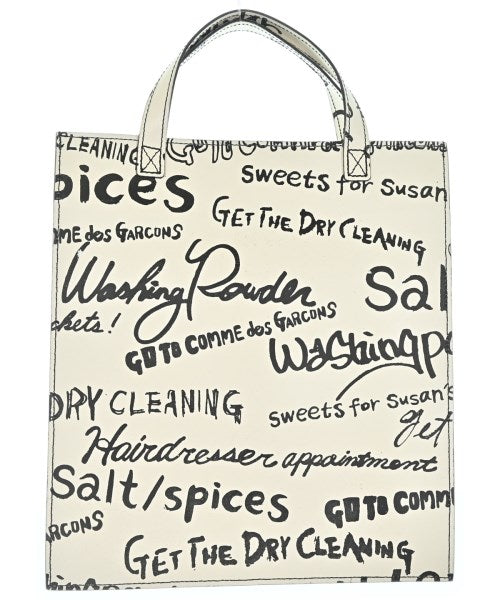 CLEANING
Sweets for Susan
pices
GET THE DRY CLEANING
ME des GARCONS
Washing Powder
Sal
ckets!
GO TO COMME des GARCONS
Washing po
DRY CLEANING
Sweets for Susan's
get
Hairdresser appointment
Salt/spices
GO TO COMM
GARCONS
GET THE DRY CLEANING